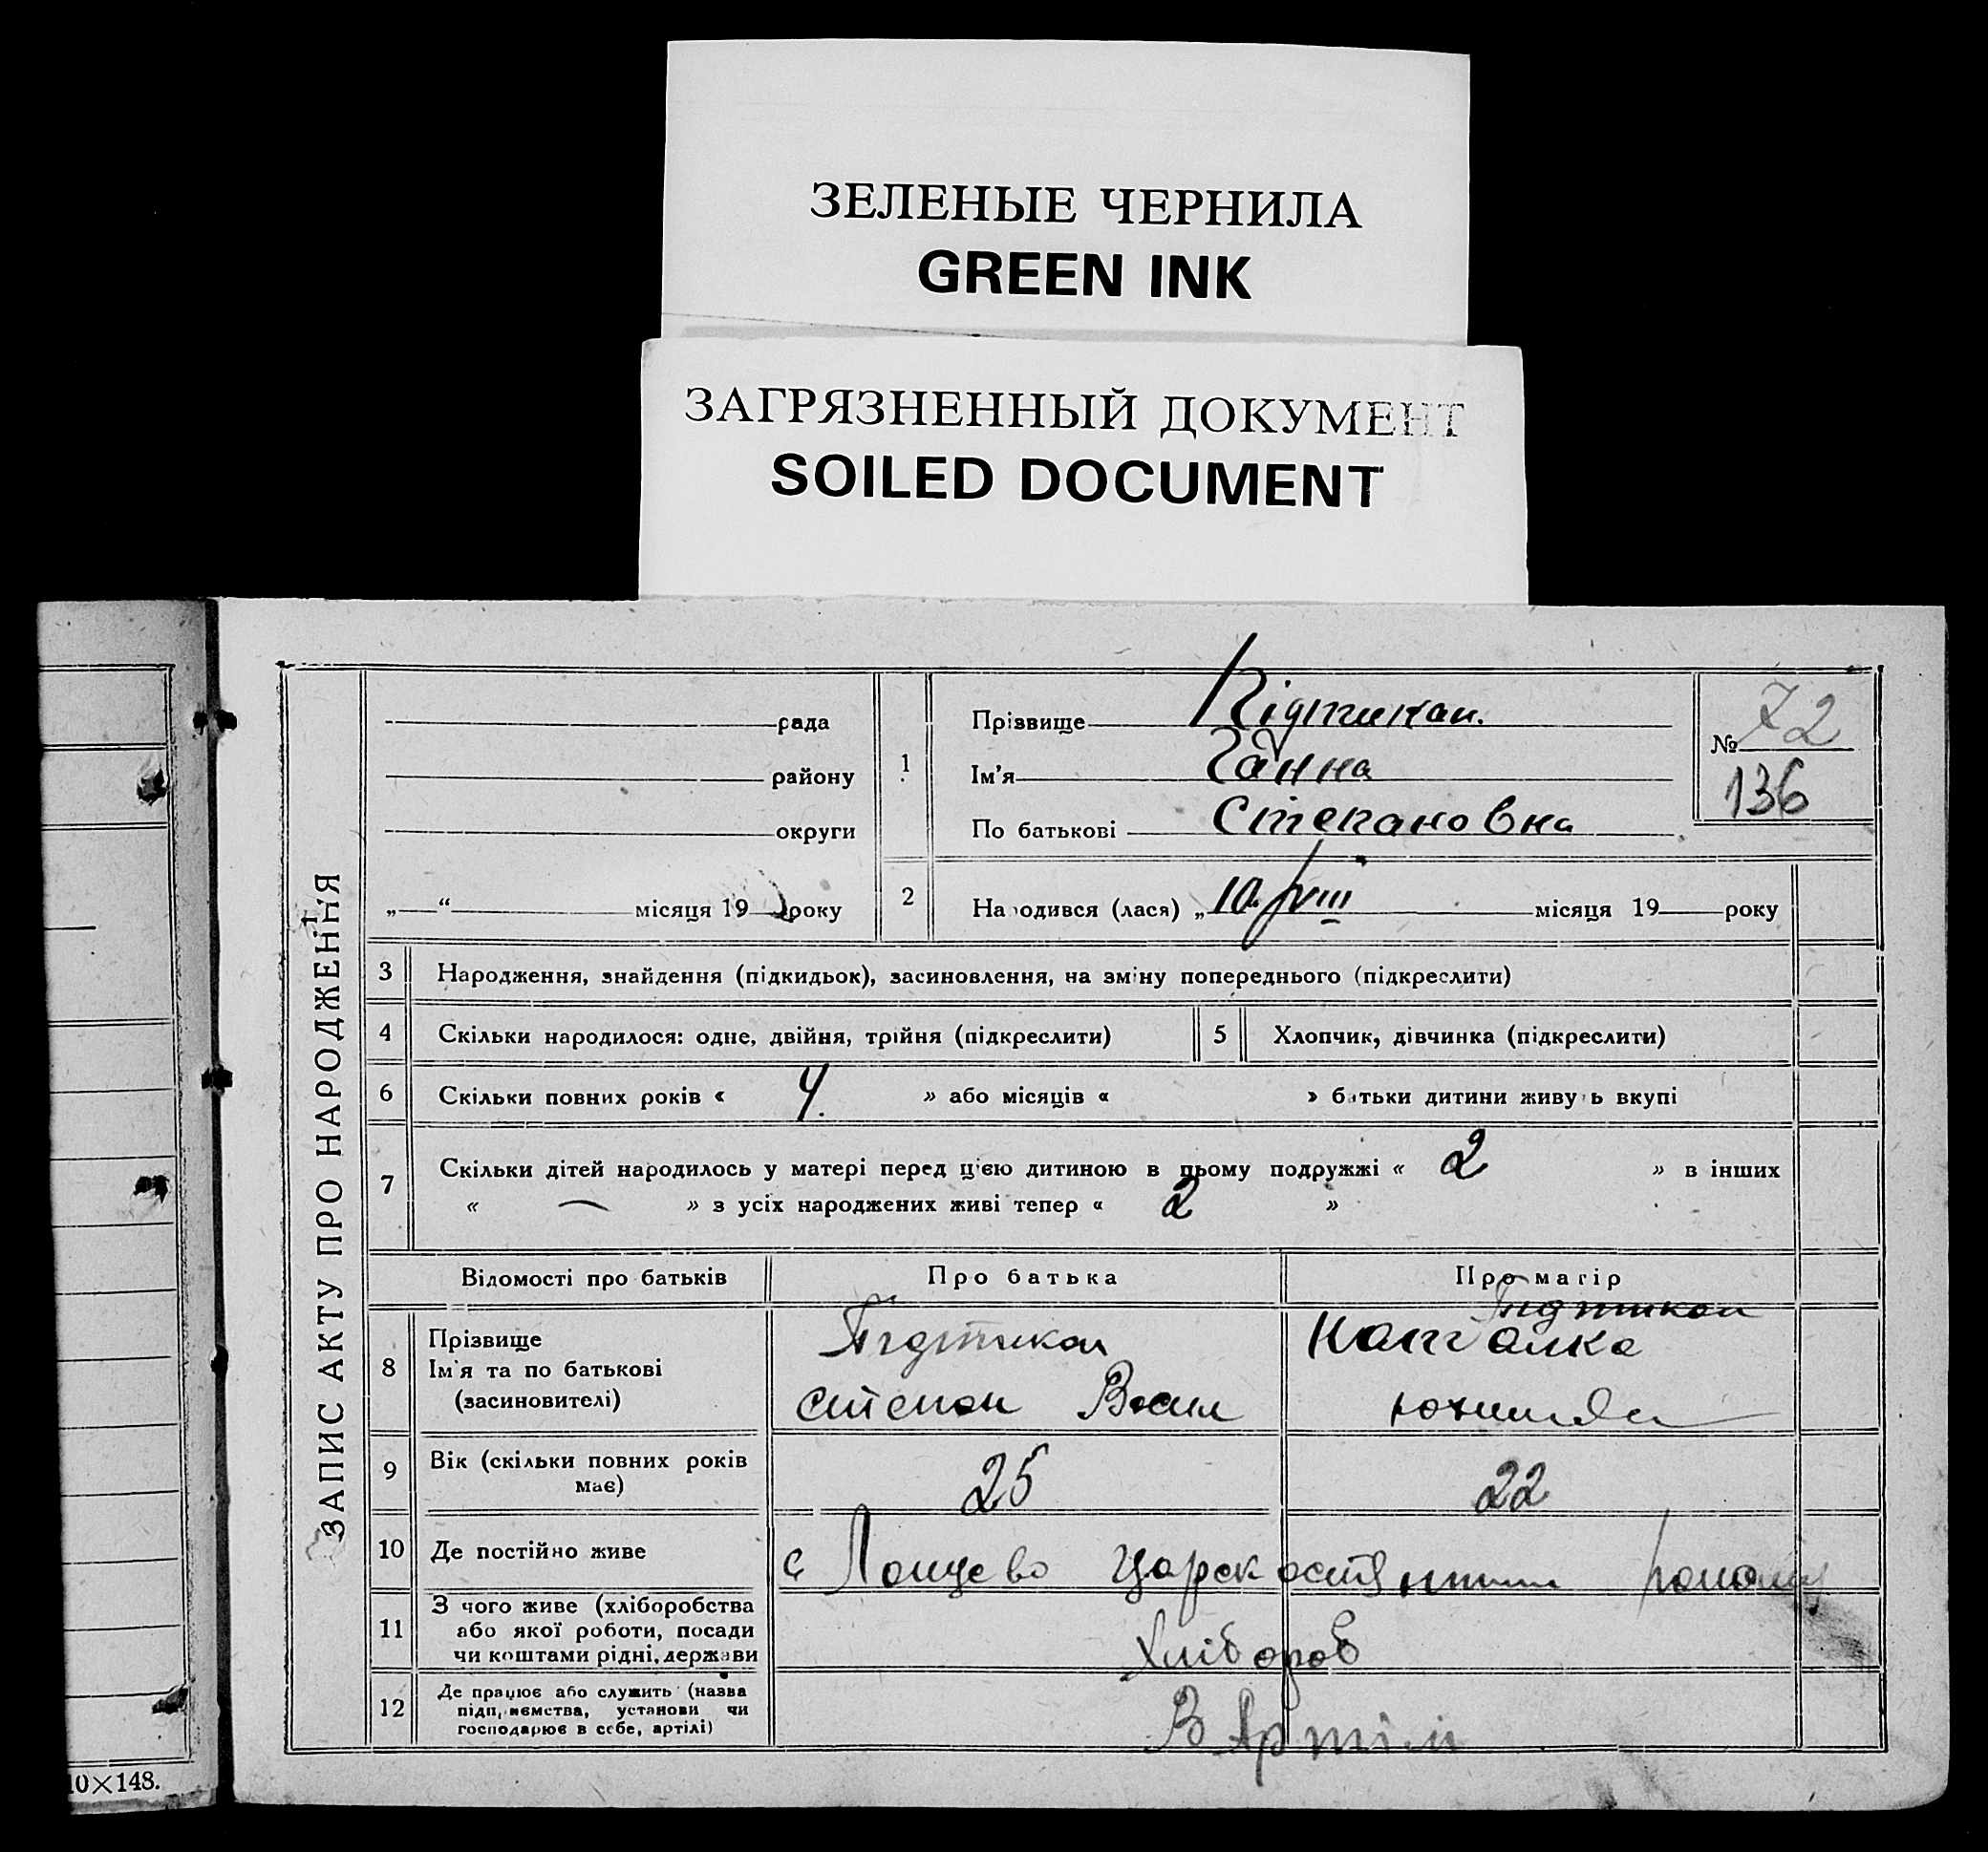 ЗЕЛЕНЫЕ ЧЕРНИЛА
GREEN INK
ЗАГРЯЗНЕННЫЙ ДОКУМЕНТ
SOILED DOCUMENT
ЗАПИС АКТУ ПРО НАРОДЖЕННЯ
рада
району
округи
„ “ місяця 19 року
1
Прізвище Підтикан.
Ім'я Ганна
По батькові Степановна
№ 72
136
2 Народився (лася) „10 VIII місяця 19 року
3 Народження, знайдення (підкидьок), засиновлення, на зміну попереднього (підкреслити)
4 Скільки народилося: одне, двійня, трійня (підкреслити)
5 Хлопчик, дівчинка (підкреслити)
6 Скільки повних років « 4. » або місяців « » батьки дитини живуть вкупі
7 Скільки дітей народилось у матері перед цією дитиною в цьому подружжі « 2 » в інших
« — » з усіх народжених живі тепер « 2 »
Відомості про батьків Про батька Про матір
8 Прізвище
Ім'я та по батькові
(засиновителі)
Підтикан
Степан Васил
Підтикан
9 Вік (скільки повних років
має)
25 22
10 Де постійно живе
с
11 З чого живе (хліборобства
або якої роботи, посади
чи коштами рідні, держави
Хлібороб
12 Де працює або служить (назва
підприємства, установи чи
господарює в себе, артілі)
В Артілі
10×148.